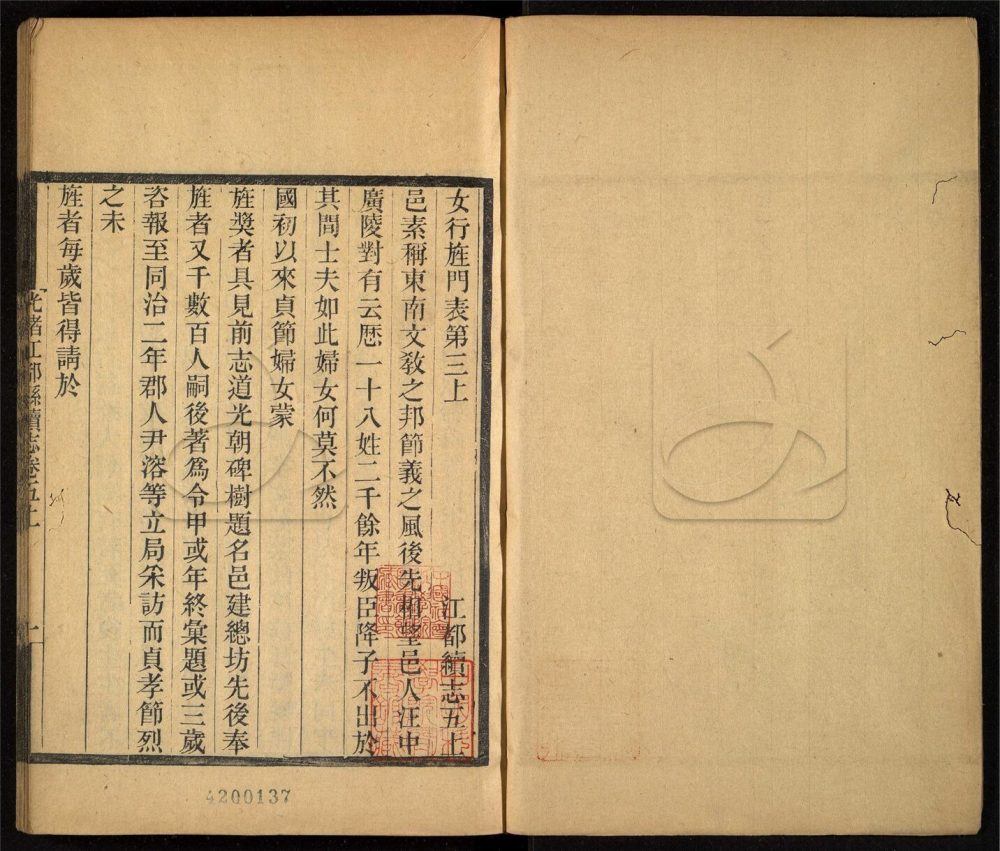 女行旌門表第三上 江都續志五上
邑素稱東南文教之邦節義之風後先相望邑人汪中
廣陵對有云歷一十八姓二千餘年叛臣降子不出於
其間士夫如此婦女何莫不然
國初以來貞節婦女蒙
旌獎者具見前志道光朝碑樹題名邑建總坊先後奉
旌者又千數百人嗣後著爲令甲或年終彙題或三歲
咨報至同治二年郡人尹溶等立局采訪而貞孝節烈
之未
旌者每歲皆得請於
光緒江都縣續志卷五上
4200137